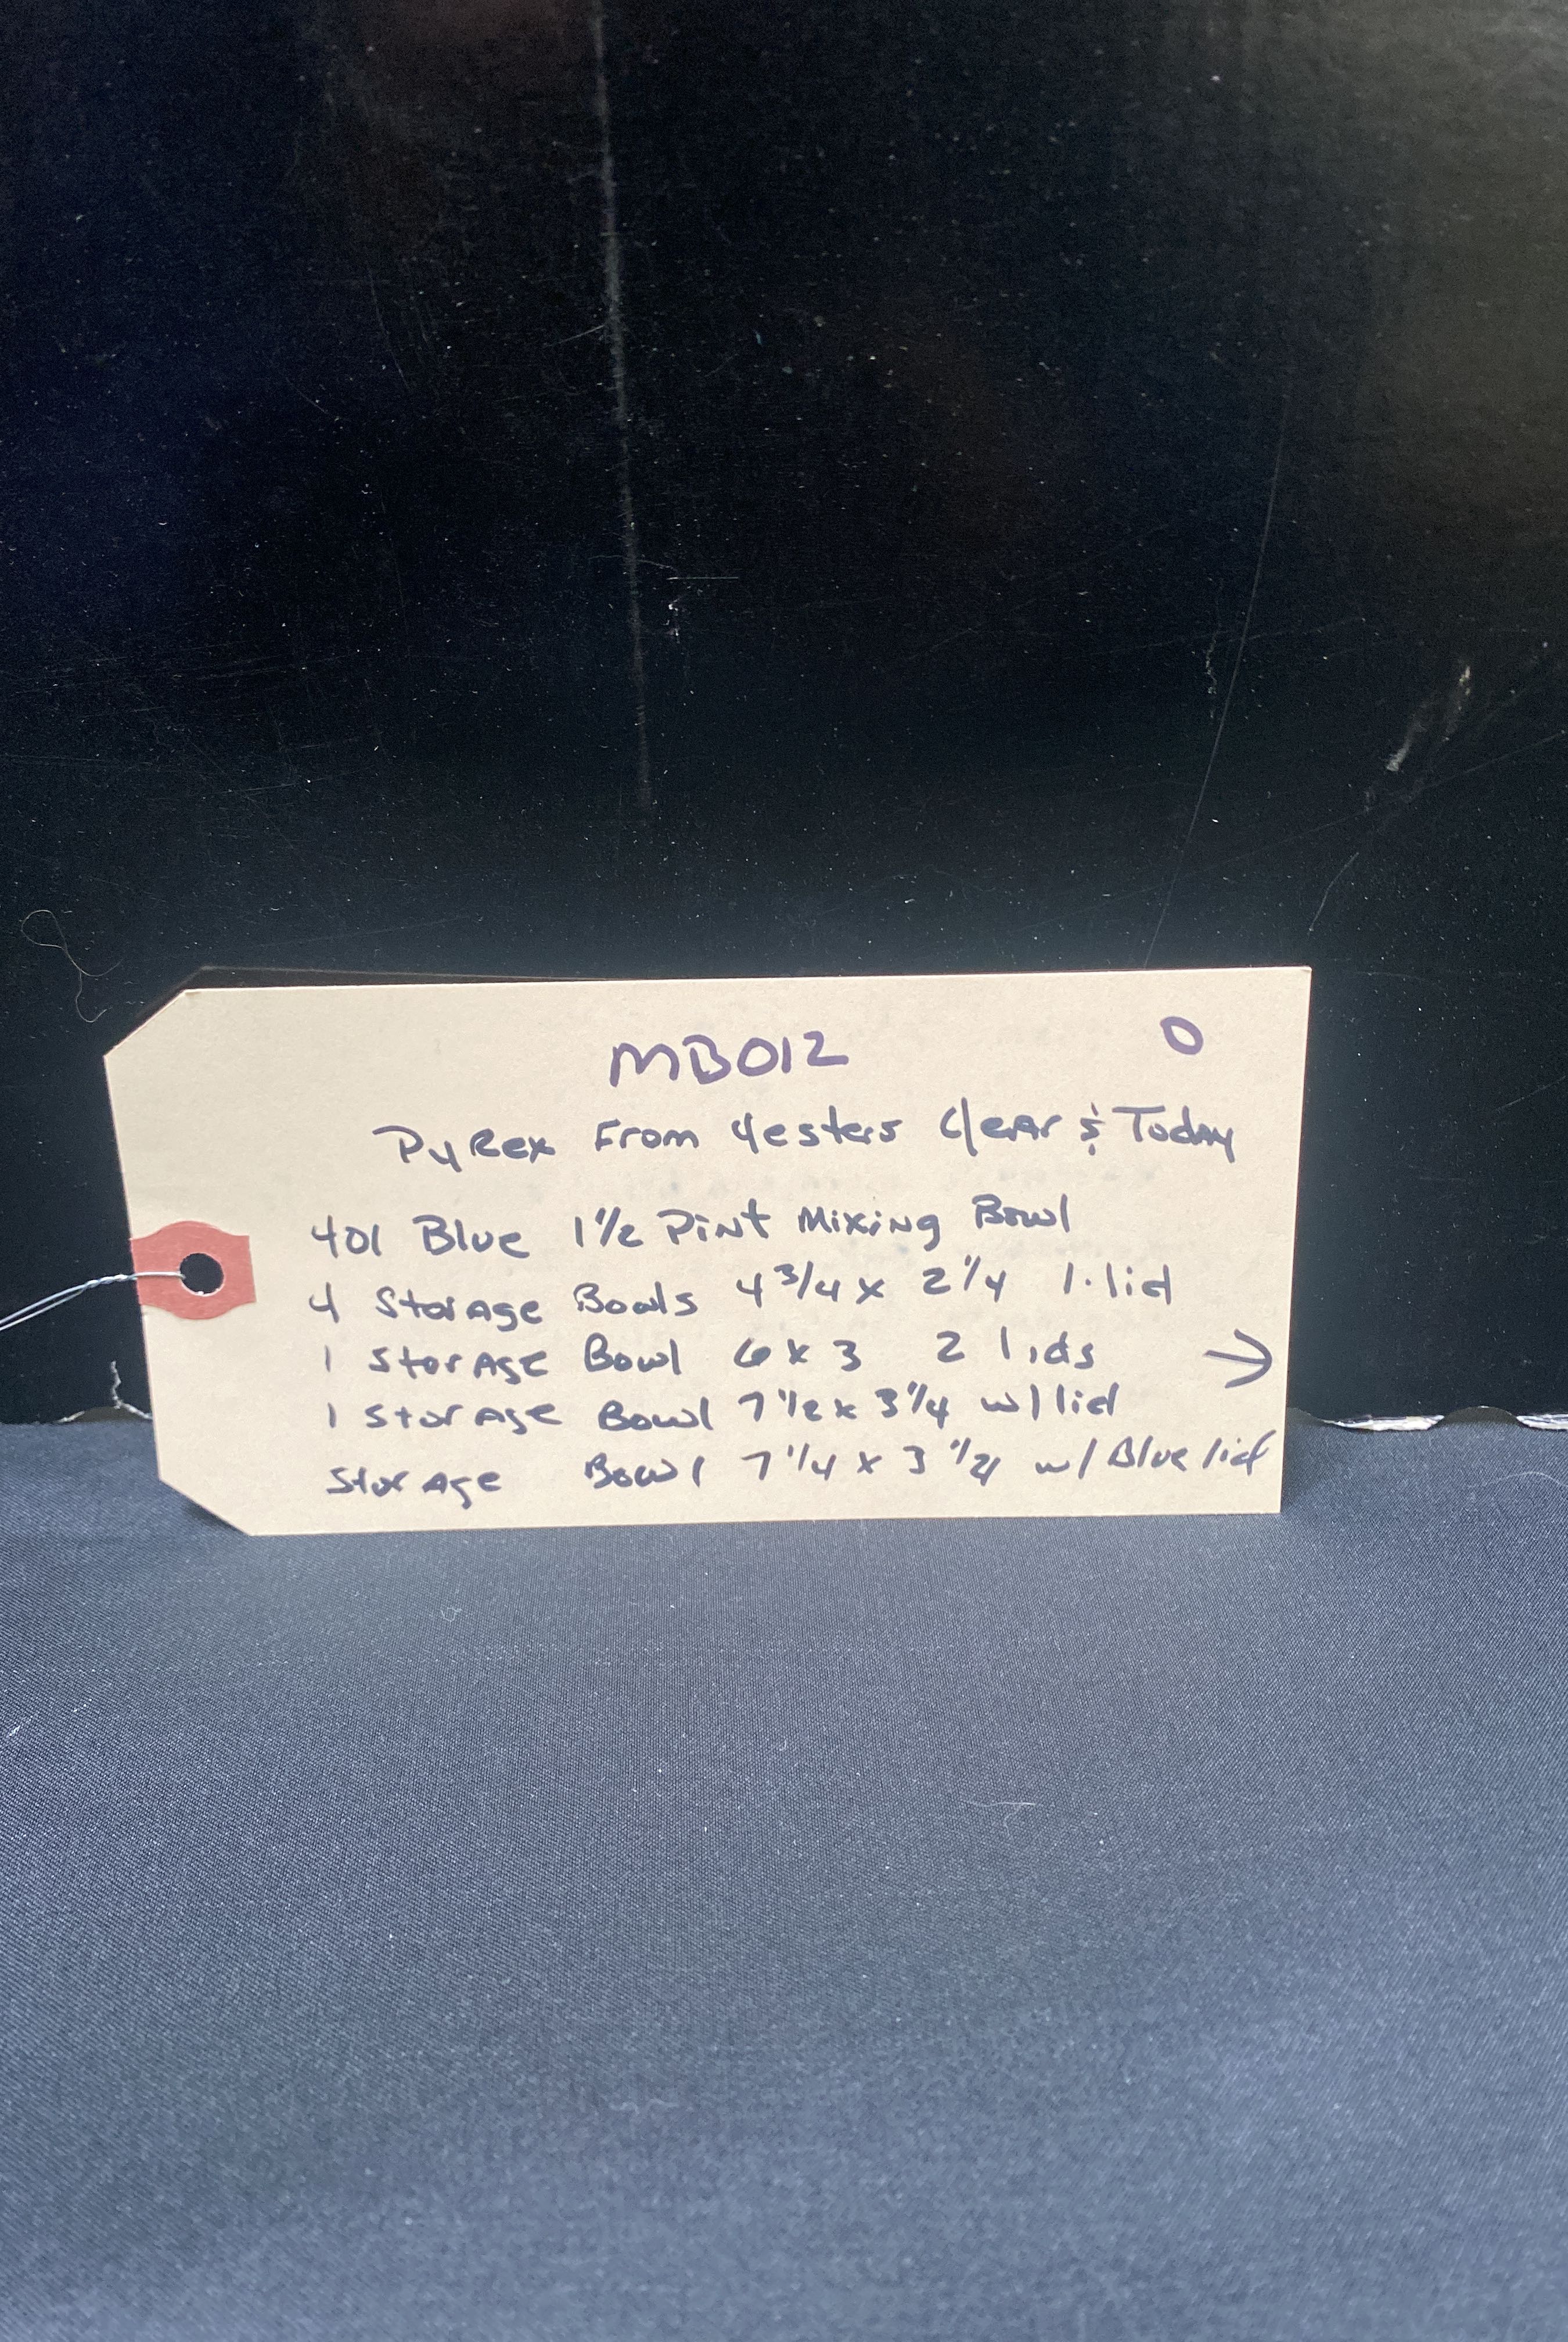 MB012 O
PyRex From Yesters Year & Today
401 Blue 1 1/2 Pint Mixing Bowl
4 Storage Bowls 4 3/4 x 2 1/4 1 lid
1 Storage Bowl 6 x 3 2 lids →
1 Storage Bowl 7 1/2 x 3 1/4 w/ lid
Storage Bowl 7 1/4 x 3 w/ Blue lid